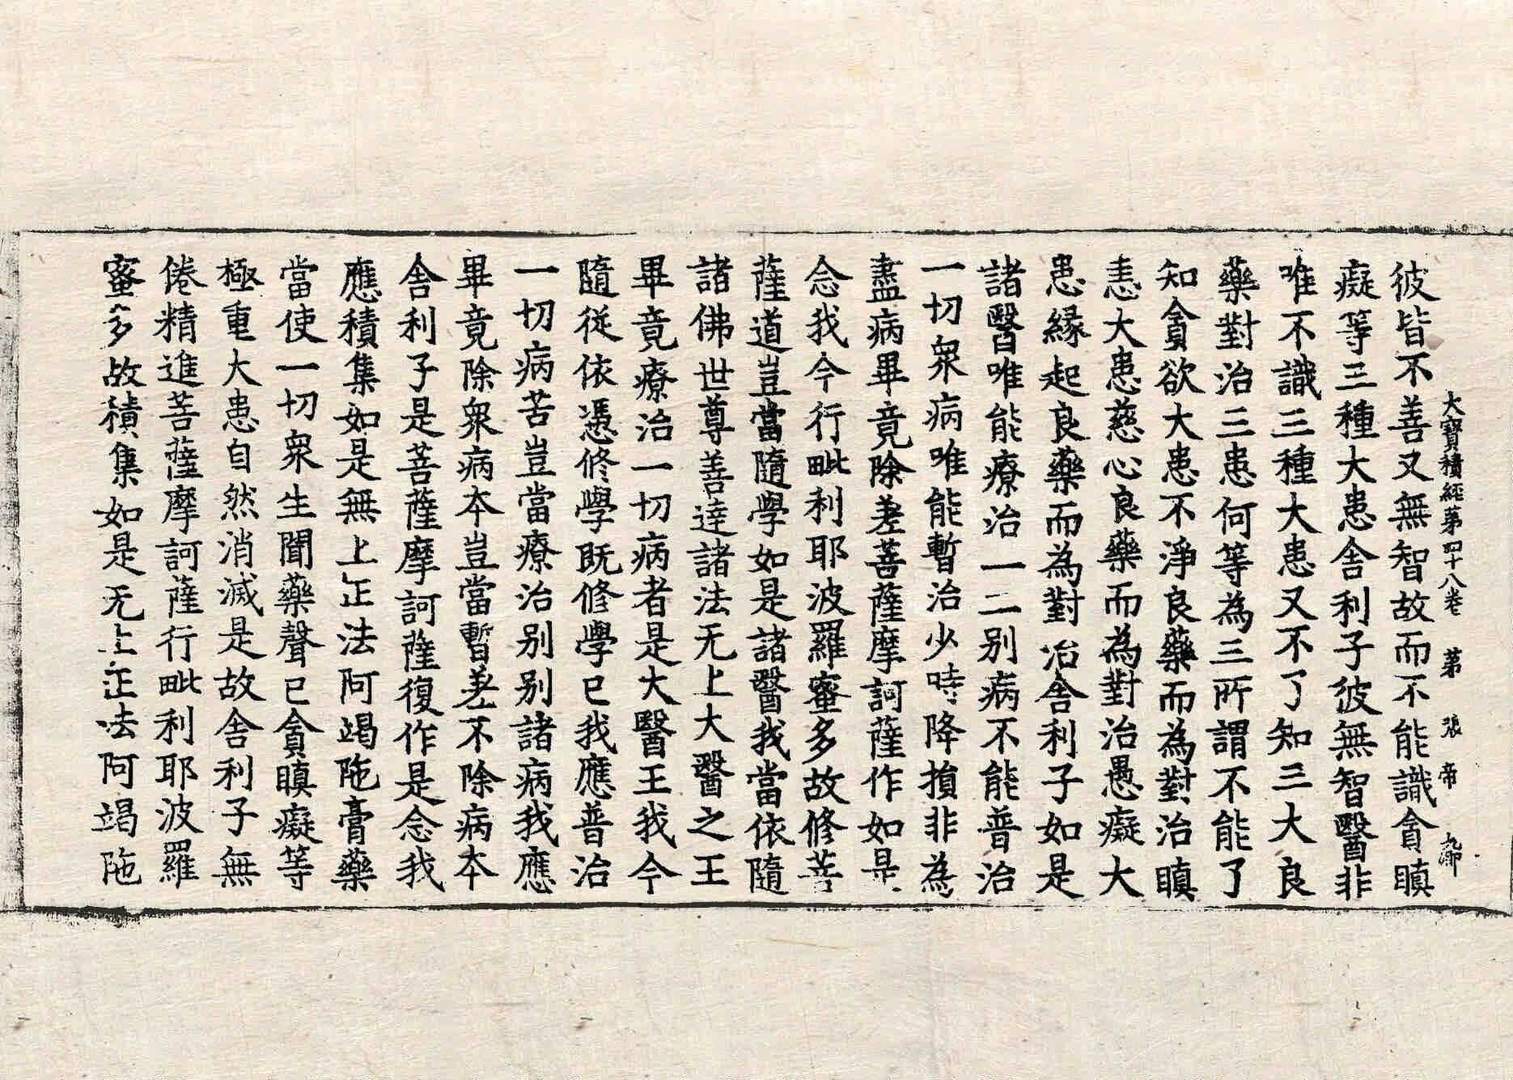 大寶積經第四十八卷 第 張 帝
彼皆不善又無智故而不能識貪瞋
癡等三種大患舍利子彼無智醫非
唯不識三種大患又不了知三大良
藥對治三患何等為三所謂不能了
知貪欲大患不淨良藥而為對治瞋
恚大患慈心良藥而為對治愚癡大
患緣起良藥而為對治舍利子如是
諸醫唯能療治一二別病不能普治
一切衆病唯能暫治少時降損非為
盡病畢竟除差菩薩摩訶薩作如是
念我今行毗利耶波羅蜜多故修菩
薩道豈當隨學如是諸醫我當依隨
諸佛世尊善達諸法无上大醫之王
畢竟療治一切病者是大醫王我今
隨從依憑修學既修學已我應普治
一切病苦豈當療治別別諸病我應
畢竟除衆病本豈當暫差不除病本
舍利子是菩薩摩訶薩復作是念我
應積集如是無上正法阿竭陁膏藥
當使一切衆生聞藥聲已貪瞋癡等
極重大患自然消滅是故舍利子無
倦精進菩薩摩訶薩行毗利耶波羅
蜜多故積集如是无上正法阿竭陁